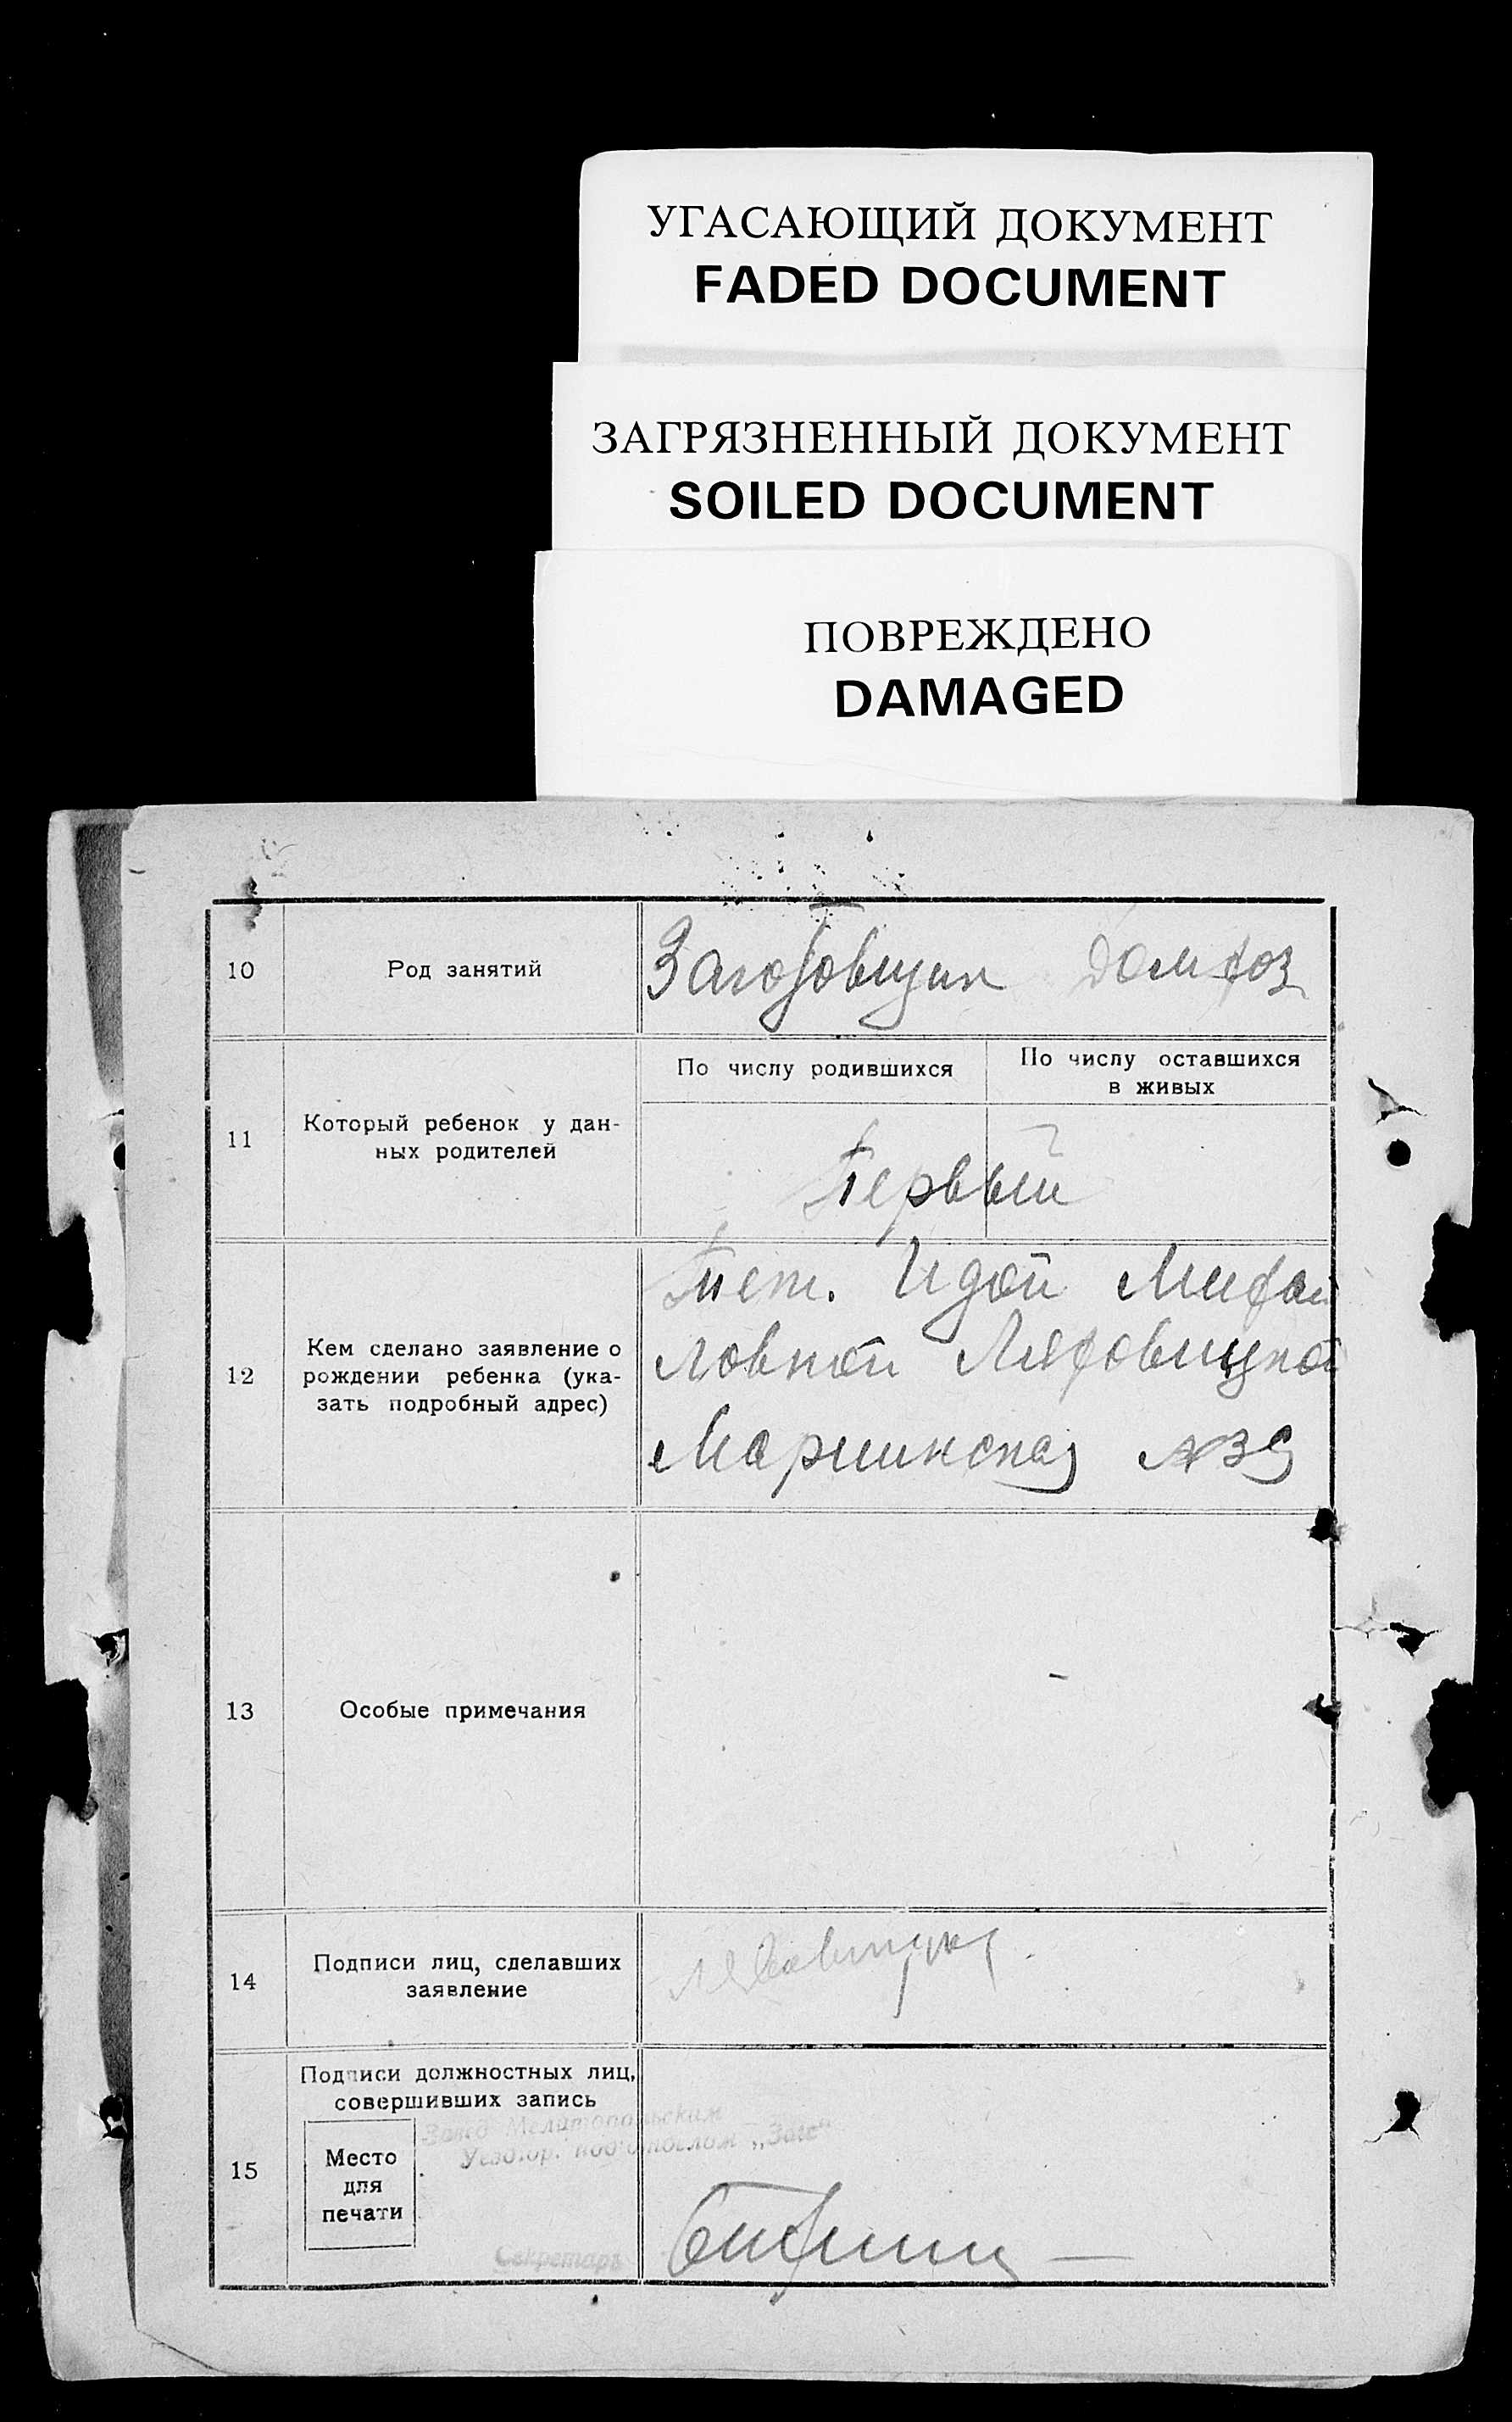 УГАСАЮЩИЙ ДОКУМЕНТ
FADED DOCUMENT
ЗАГРЯЗНЕННЫЙ ДОКУМЕНТ
SOILED DOCUMENT
ПОВРЕЖДЕНО
DAMAGED
10 Род занятий Заготовщик домхоз
11 Который ребенок у дан-
ных родителей
По числу родившихся
По числу оставшихся
в живых
Первый
12 Кем сделано заявление о
рождении ребенка (ука-
зать подробный адрес)
Тет. Идой Михай
ловной Ляховицкой
Мариинская № 39
13 Особые примечания
14 Подписи лиц, сделавших
заявление
15 Подписи должностных лиц,
совершивших запись
Место
для
печати
Завед Мелитопольским
Уездгор. подотделом „Загс"
Секретарь